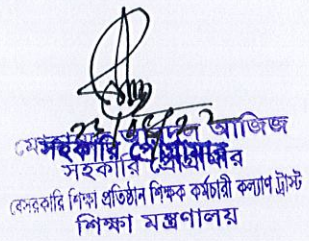 আজিজ
সহকারি প্রোগ্রামার
সহকারি প্রোগ্রামার
বেসরকারি শিক্ষা প্রতিষ্ঠান শিক্ষক কর্মচারী কল্যাণ ট্রাস্ট
শিক্ষা মন্ত্রণালয়